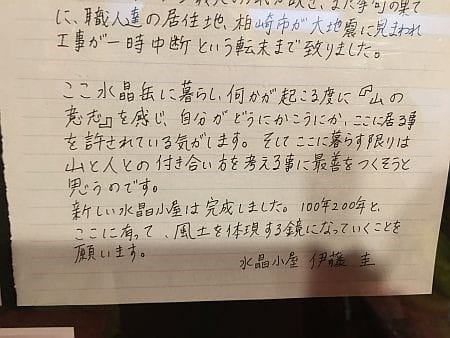 に、職人達の居住地、柏崎市が大地震に見まわれ
工事が一時中断という転末まで致りました。
ここ水晶岳に暮らし、何かが起こる度に『山の
意志』を感じ、自分がどうにかこうにか、ここに居る事
を許されている気がします。そしてここに暮らす限りは
山と人との付き合い方を考える事に最善をつくそうと
思うのです。
新しい水晶小屋は完成しました。100年200年と、
ここに有って、風土を体現する鏡になっていくことを
願います。
水晶小屋 伊藤 圭